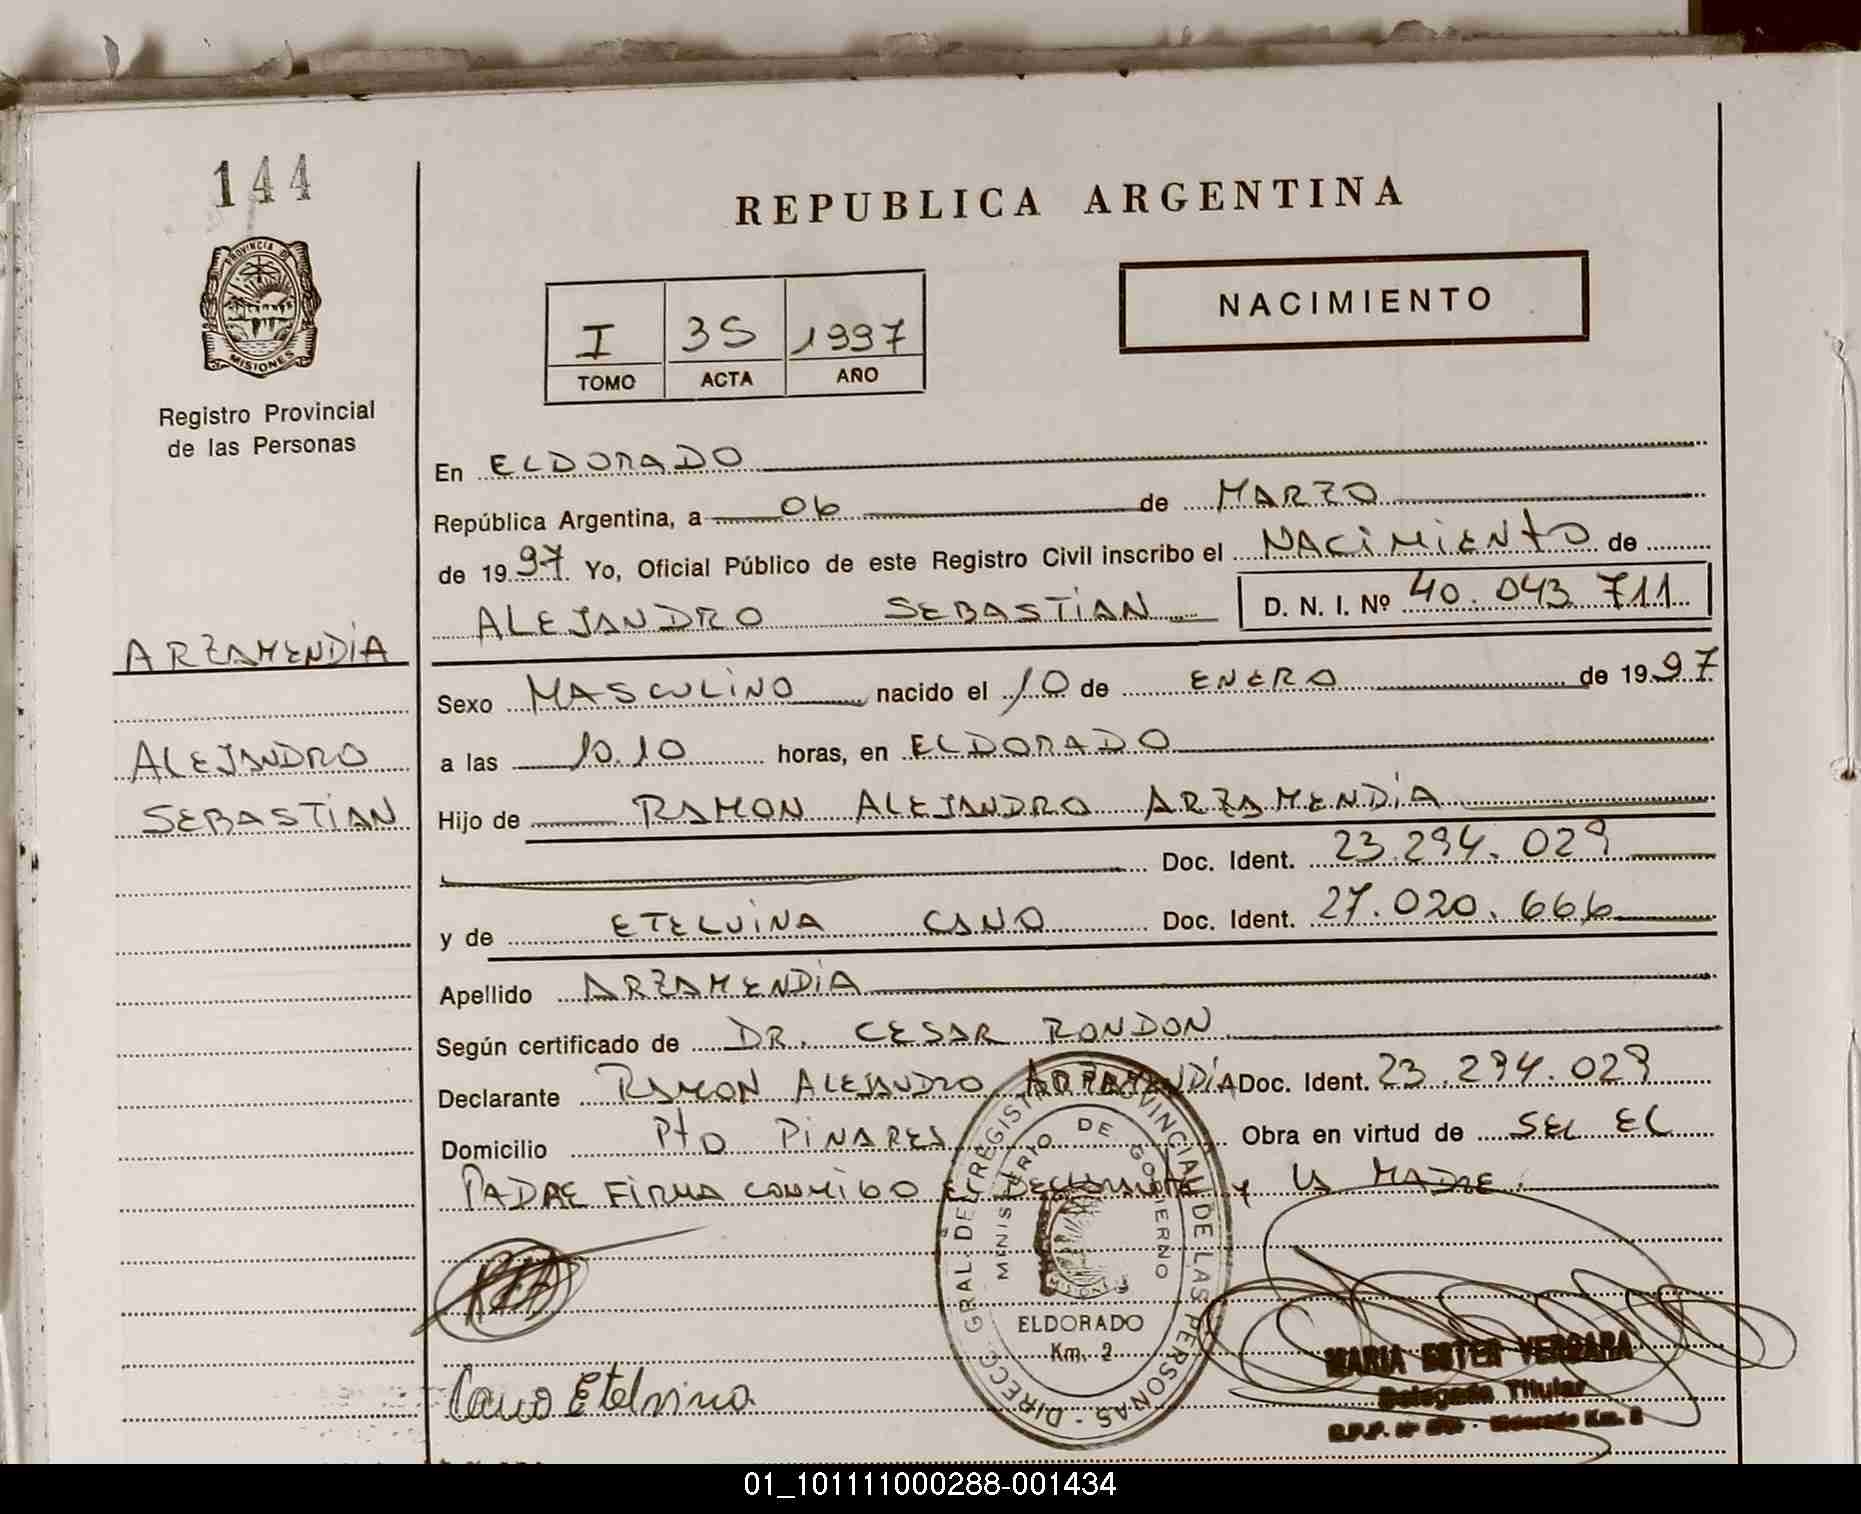 144
REPUBLICA ARGENTINA
PROVINCIA DE
MISIONES
Registro Provincial
de las Personas
I 35 1997
TOMO ACTA AÑO
NACIMIENTO
En ELDORADO
República Argentina, a 06 de MARZO
de 1997 Yo, Oficial Público de este Registro Civil inscribo el NACIMIENTO de
ALEJANDRO SEBASTIAN D. N. I. Nº 40.043.711
ARZAMENDIA
Sexo MASCULINO nacido el 10 de ENERO de 1997
ALEJANDRO
a las 10.10 horas, en ELDORADO
SEBASTIAN
Hijo de RAMON ALEJANDRO ARZAMENDIA
Doc. Ident. 23.294.029
y de ETELVINA CANO Doc. Ident. 27.020.666
Apellido ARZAMENDIA
Según certificado de DR. CESAR RONDON
Declarante RAMON ALEJANDRO ARZAMENDIA Doc. Ident. 23.294.029
Domicilio Pto PINARES Obra en virtud de SEL EL
PADRE FIRMA CONMIGO EL DECLARANTE y LA MADRE.
DIRECC. GRAL. DEL REGISTRO PROVINCIAL DE LAS PERSONAS -
MINISTERIO DE GOBIERNO
MISIONES
ELDORADO
Km. 2
Cano Etelvina
MARIA ESTER VERGARA
Delegada Titular
Eldorado Km. 2
01_101111000288-001434